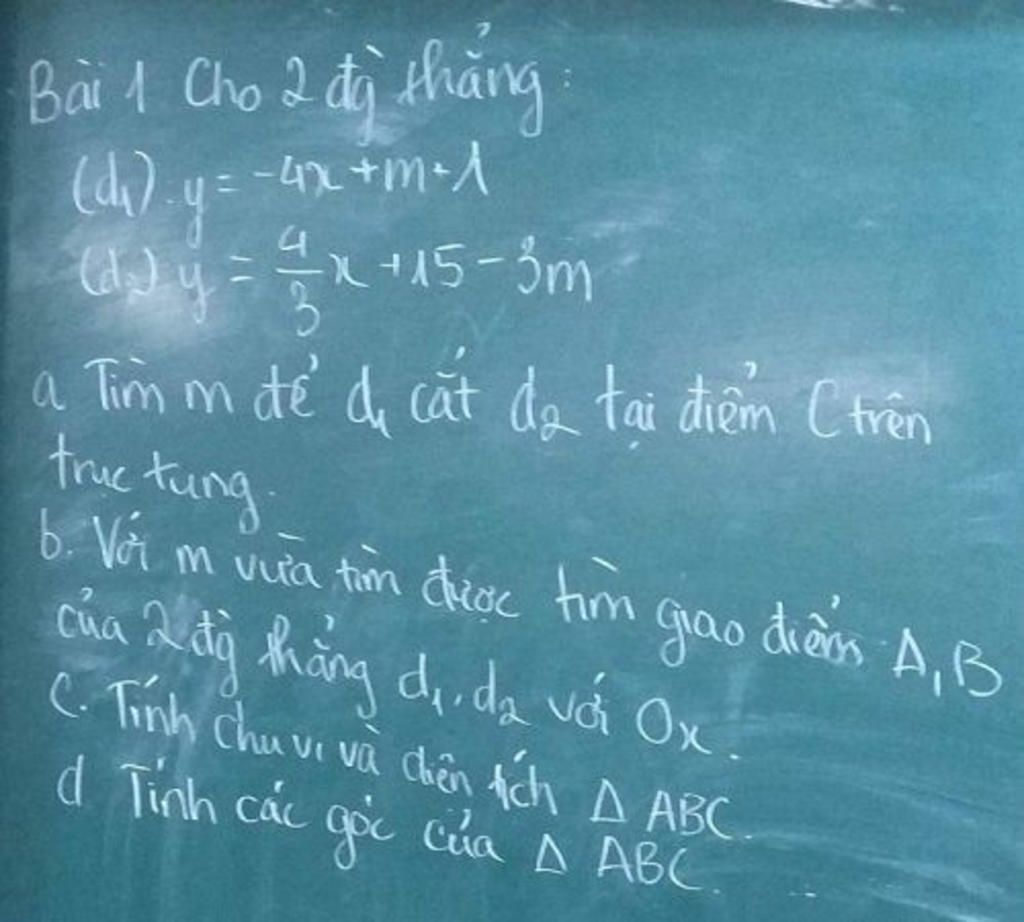 Bài 1 Cho 2 đg̀ thẳng:
(d₁). y = -4x + m + 1
(d₂) y = 4/3 x + 15 - 3m
a Tìm m để d₁ cắt d₂ tại điểm C trên
trục tung.
b. Với m vừa tìm được tìm giao điểm A, B
của 2 đg̀ thẳng d₁, d₂ với Ox.
c. Tính chu vi và diện tích Δ ABC.
d Tính các góc của Δ ABC.